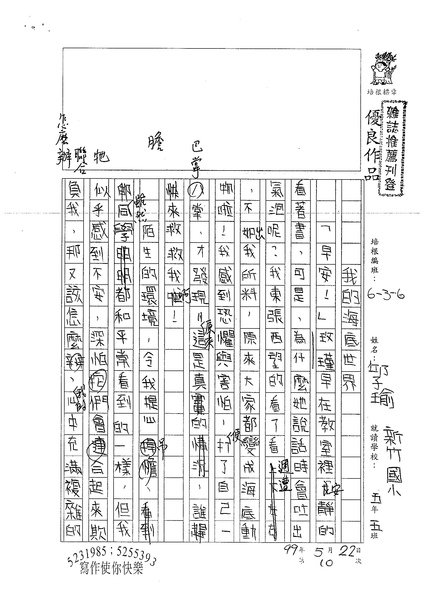 雜誌推薦刊登
優良作品
培根精章
培根編班：6-3-6
姓名：
就讀學校：新竹國小 五年五班
99年5月22日
第10次
我的海底世界
「早安！」玫瑾早在教室裡靜靜的
看著書，可是，為什麼她說話時會吐出
氣泡呢？我東張西望的看了看
，不出我所料，原來大家都變成海底動
物啦！我感到恐懼與害怕，打了自己一
巴掌，才發現這是真實的情況，誰
快來救救我啊！
陌生的環境，令我提心吊膽，看到
同學明明都和平常看到的一樣，但我
似乎感到不安，深怕牠們會聯合起來欺
負我，那又該怎麼辦，心中充滿複雜的
巴掌
膽
牠
聯合
怎麼辦
5231985；5255393
寫作使你快樂